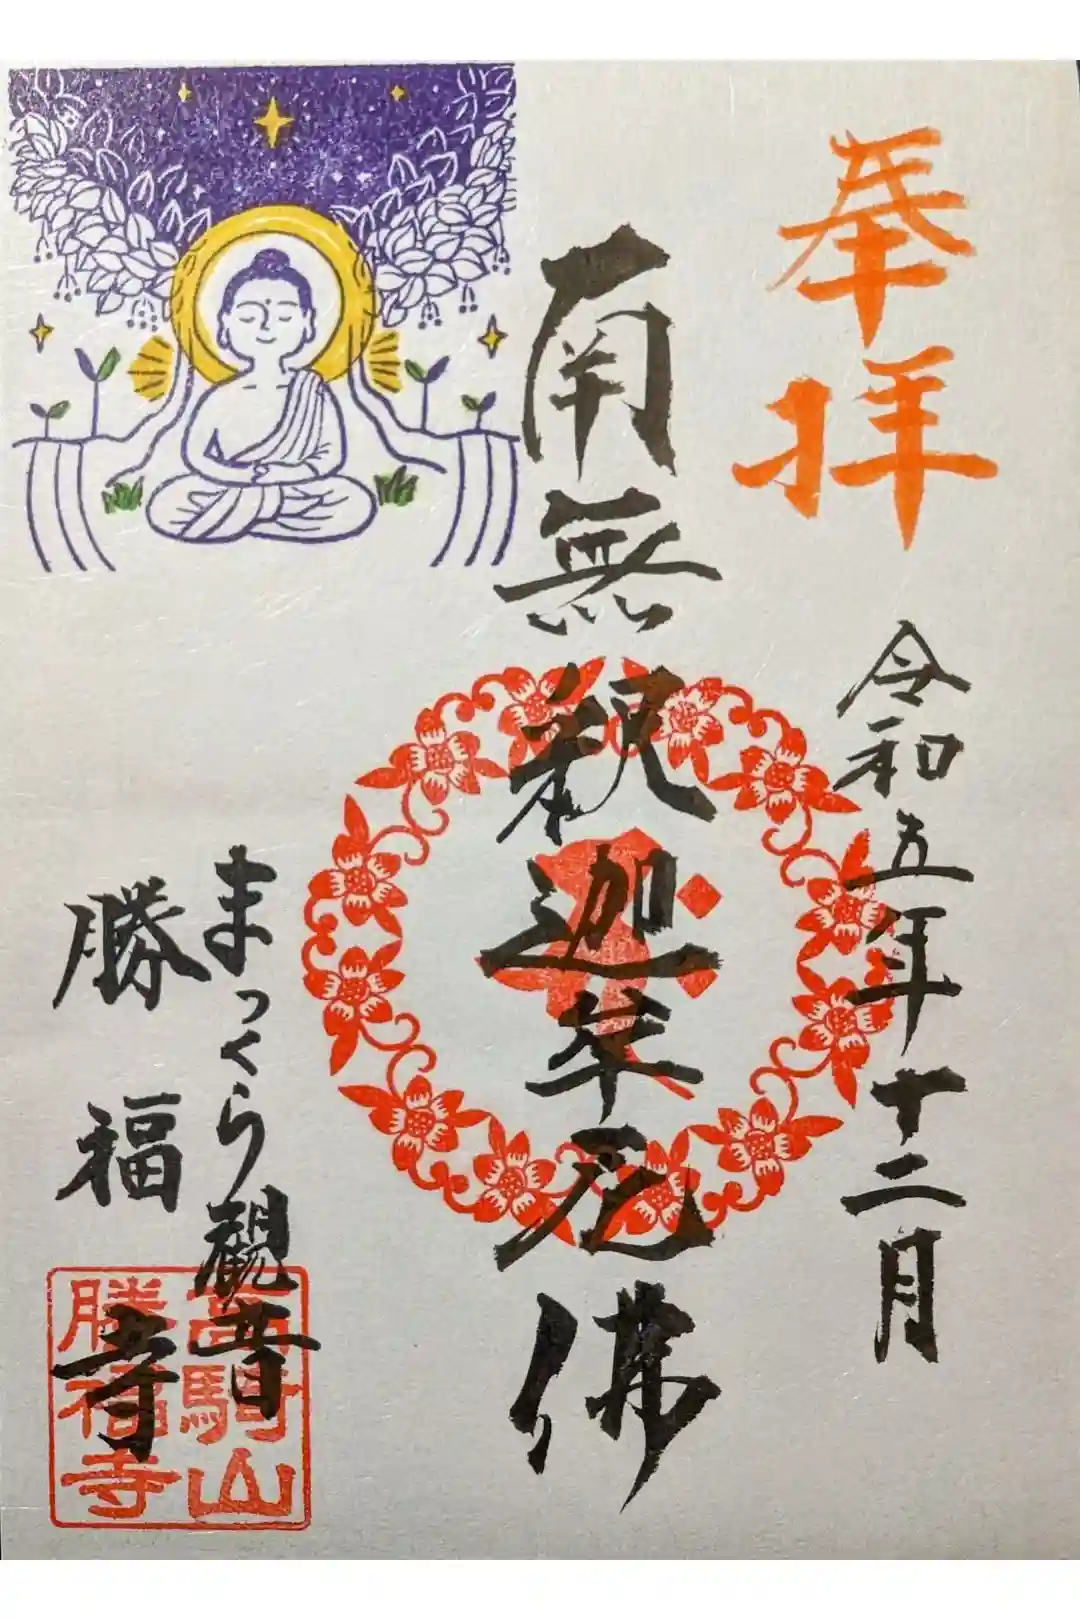 奉拝
令和五年十二月
南無釈迦牟尼佛
まっくら観音
勝福寺
高騎山
勝福寺